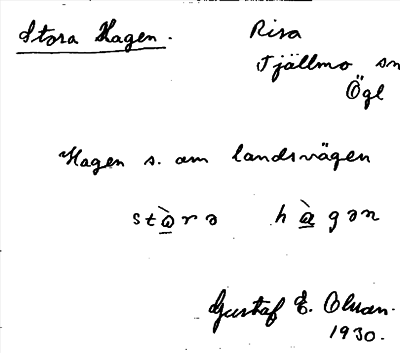 Stora Hagen. Risa
Tjällmo sn
Ögl
Hagen s. om landsvägen
stὼrə hàgən
Gustaf E. Olson.
1930.